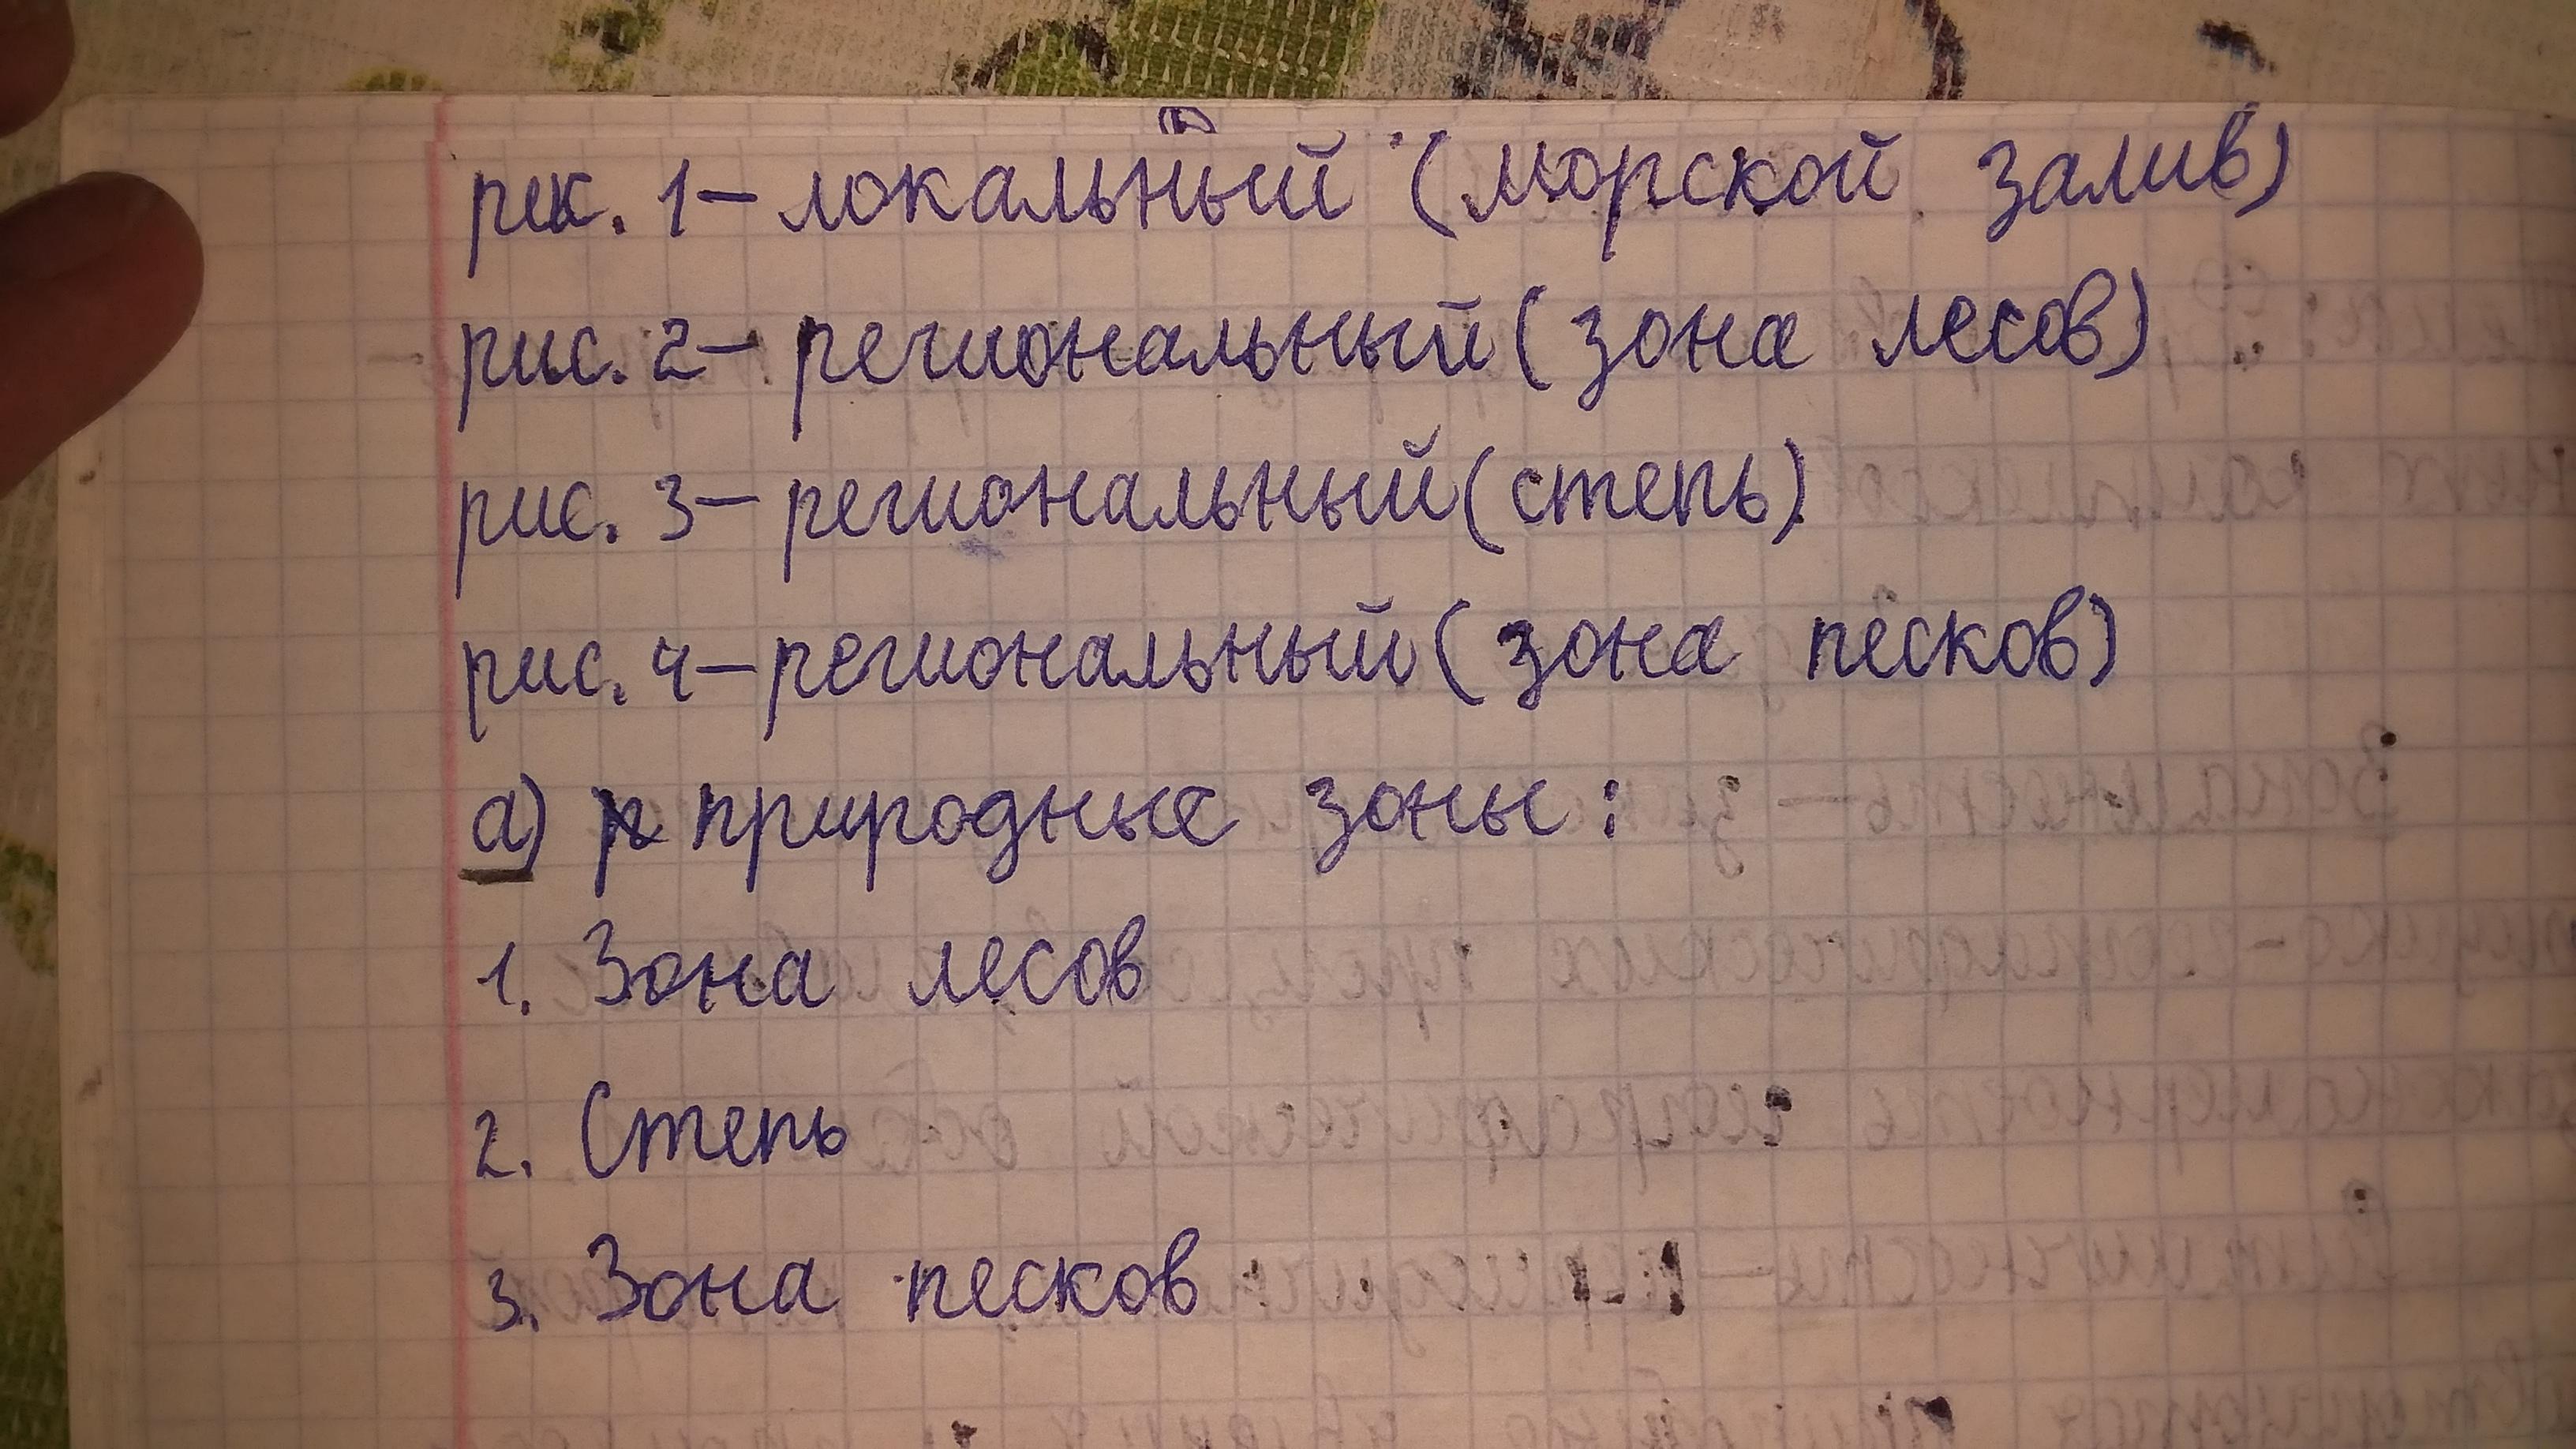 рек. 1 – локальный (морской залив)
рис. 2 – региональный (зона лесов)
рис. 3 – региональный (степь)
рис. 4 – региональный (зона песков)
а) природные зоны:
1. Зона лесов
2. Степь
3. Зона песков